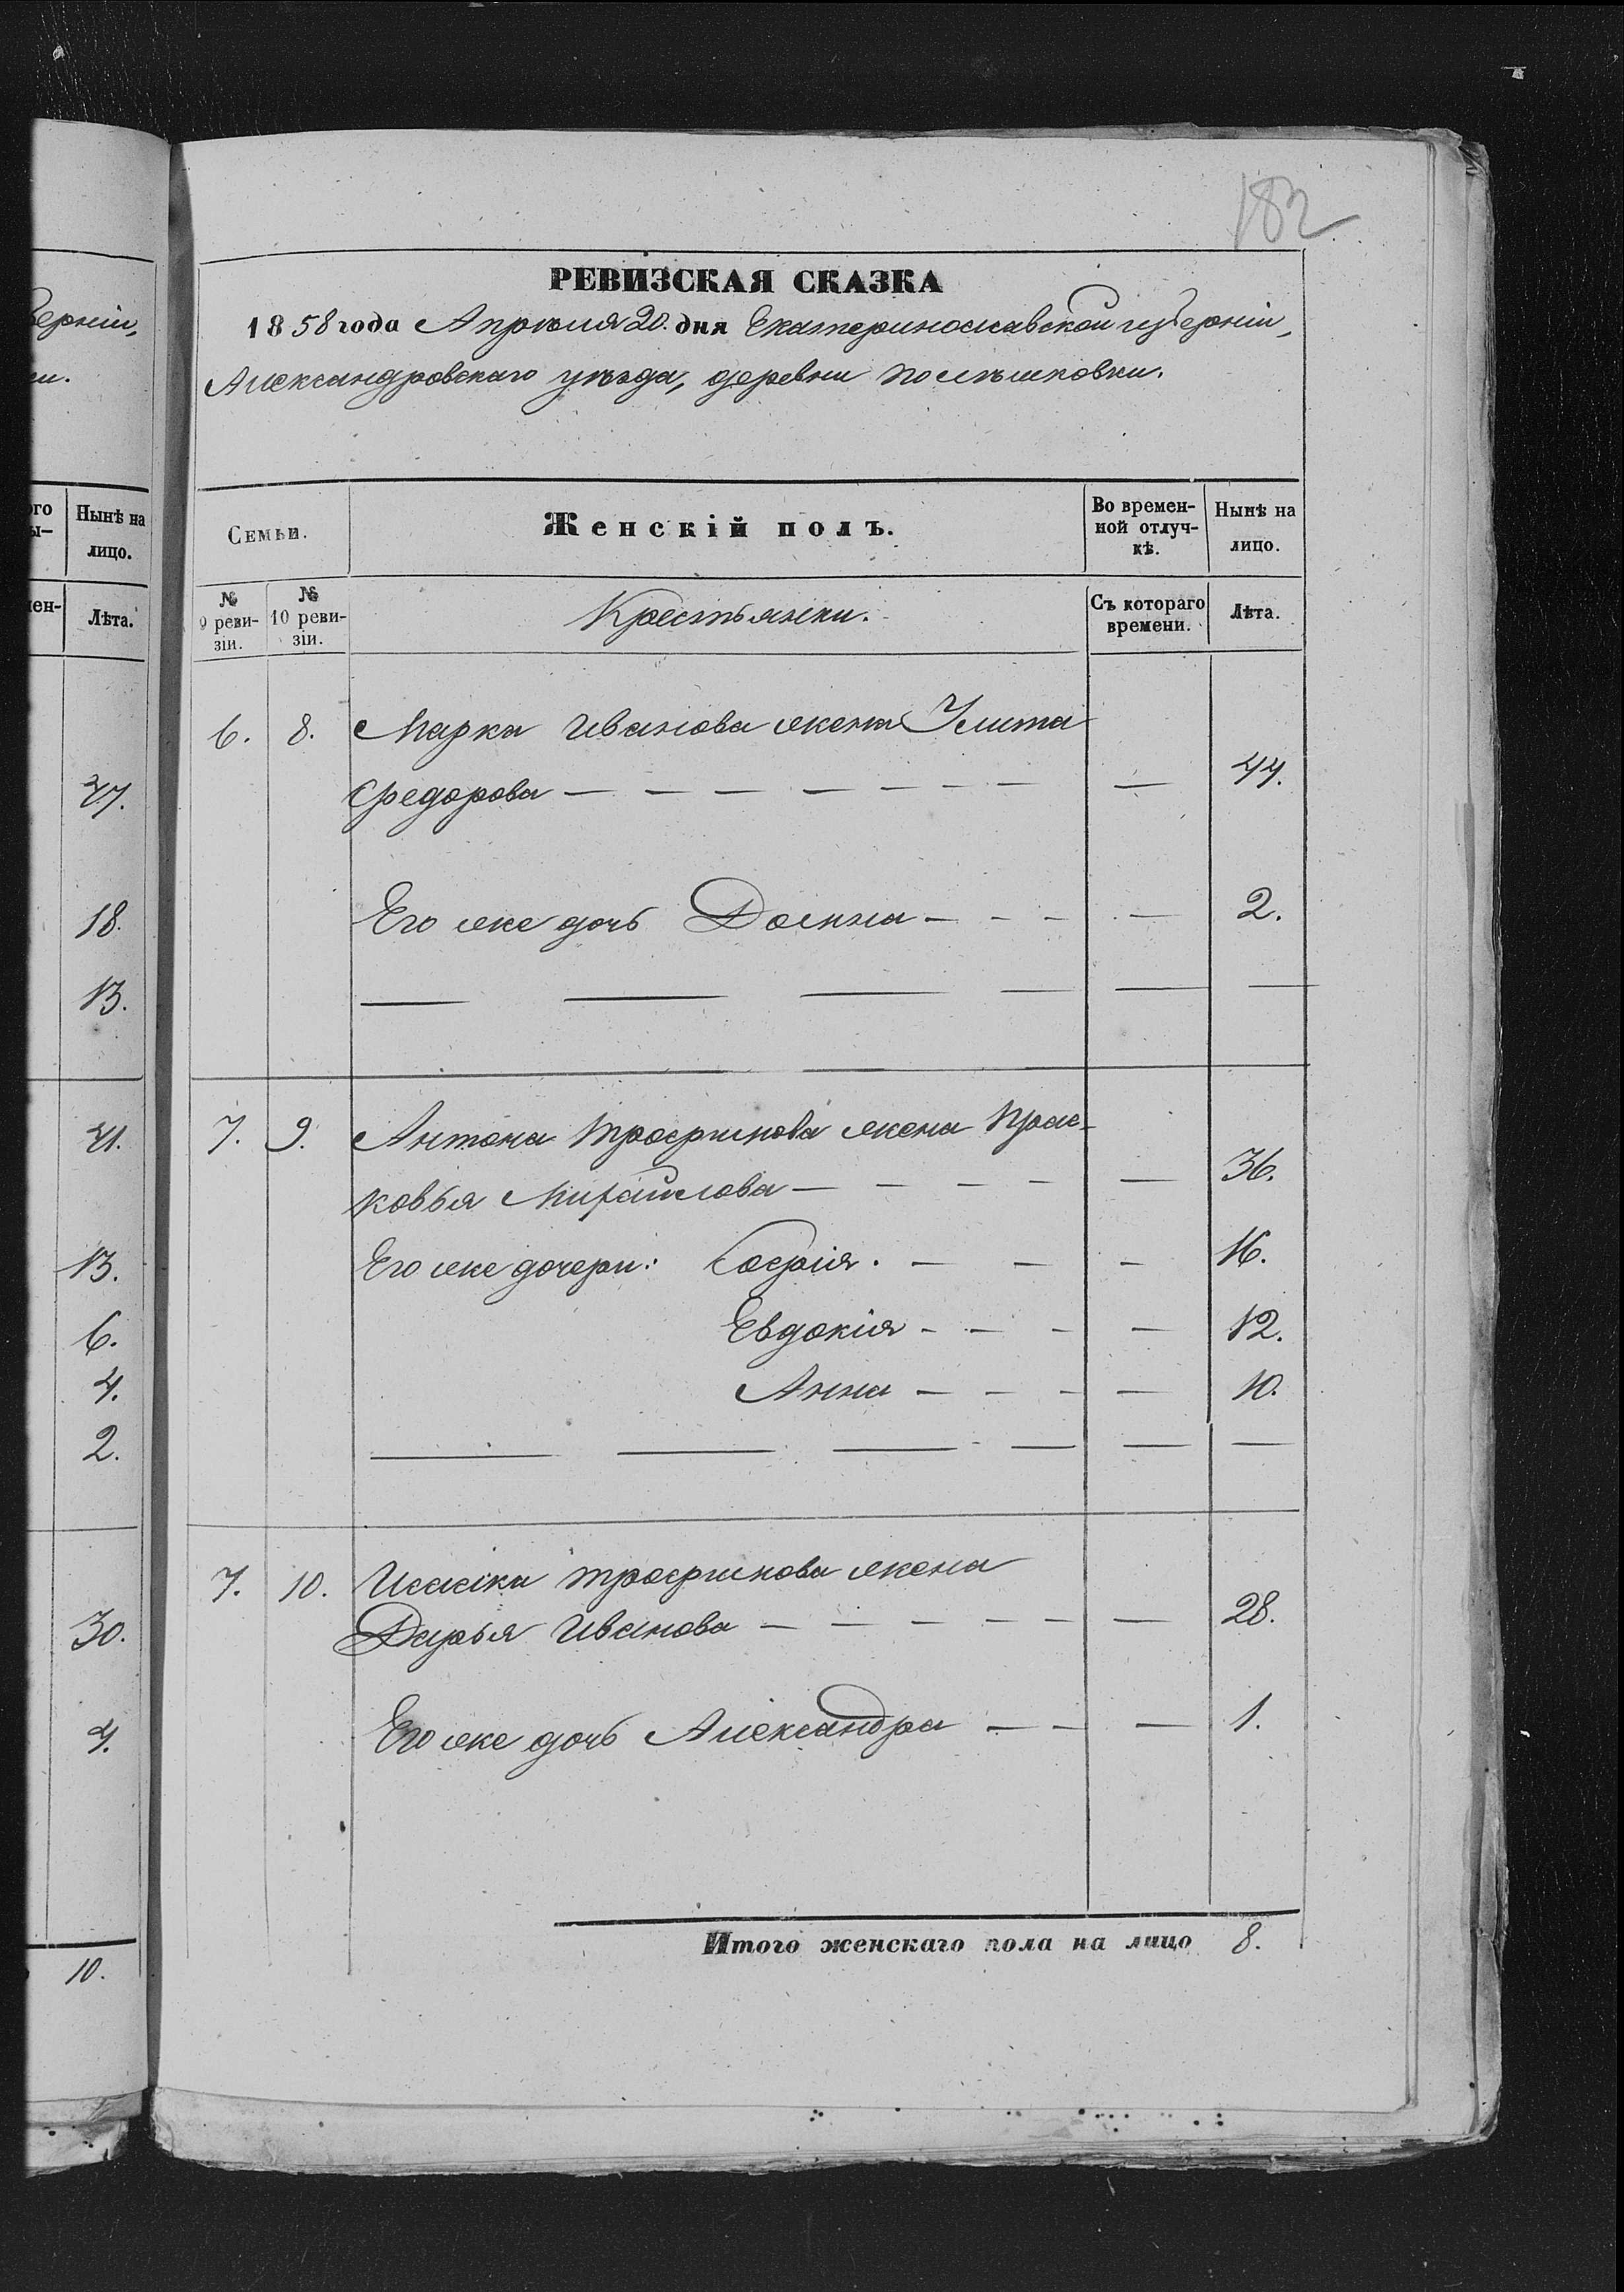 182
РЕВИЗСКАЯ СКАЗКА
1858 года Апрѣля 20. дня Екатеринославской губерніи,
Александровскаго уѣзда, деревни
Семьи.
Женскій полъ.
Во времен-
ной отлуч-
кѣ.
Нынѣ на
лицо.
№
9 реви-
зіи.
№
10 реви-
зіи.
Крестьянки.
Съ котораго
времени.
Лѣта.
6. 8. Марка Иванова жена Улита
Федорова — — — — — — — — 44.
Его же дочь Домна — — — — 2.
7. 9. Антона Трофимова жена Прас-
ковья Михайлова — — — — — 36.
Его же дочери: Софія. — — — 16.
Евдокія — — — — 12.
Анна — — — — 10.
7. 10. Исакія Трофимова жена
Дарья Иванова — — — — — — 28.
Его же дочь Александра — — — 1.
Итого женскаго пола на лицо 8.
берніи,
Нынѣ на
лицо.
Лѣта.
18.
13.
21.
13.
6.
4.
2.
30.
4.
10.